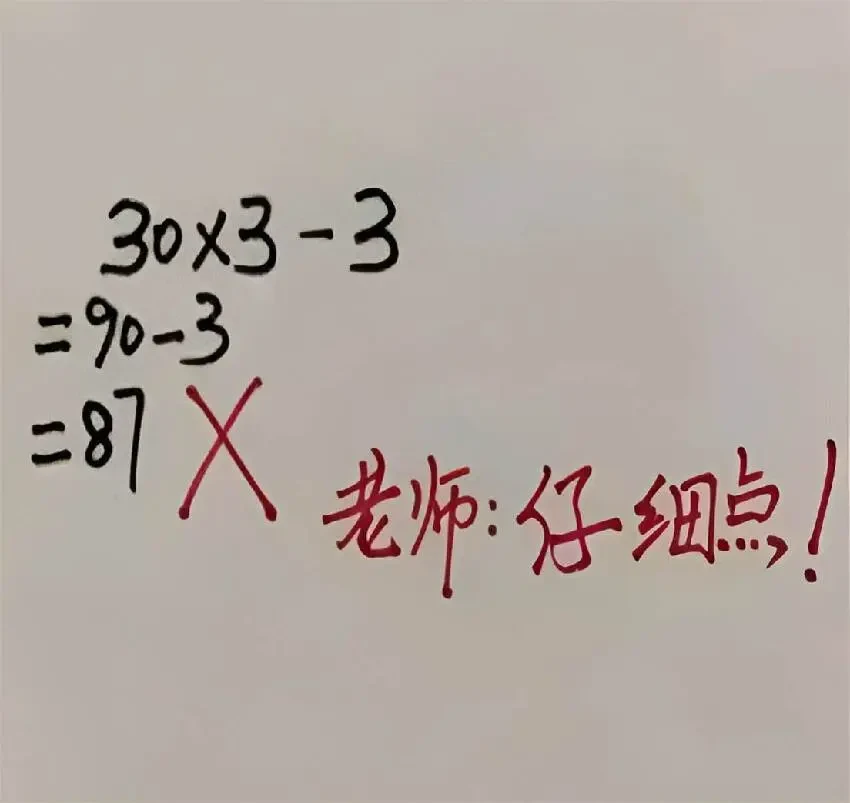 30×3-3
=90-3
=87 X
老师:仔细点!